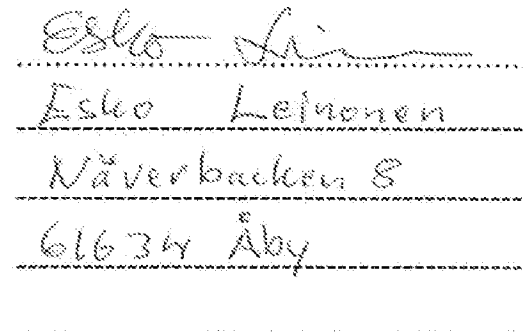 Esko
Esko Leinonen
Näverbacken 8
61634 Åby